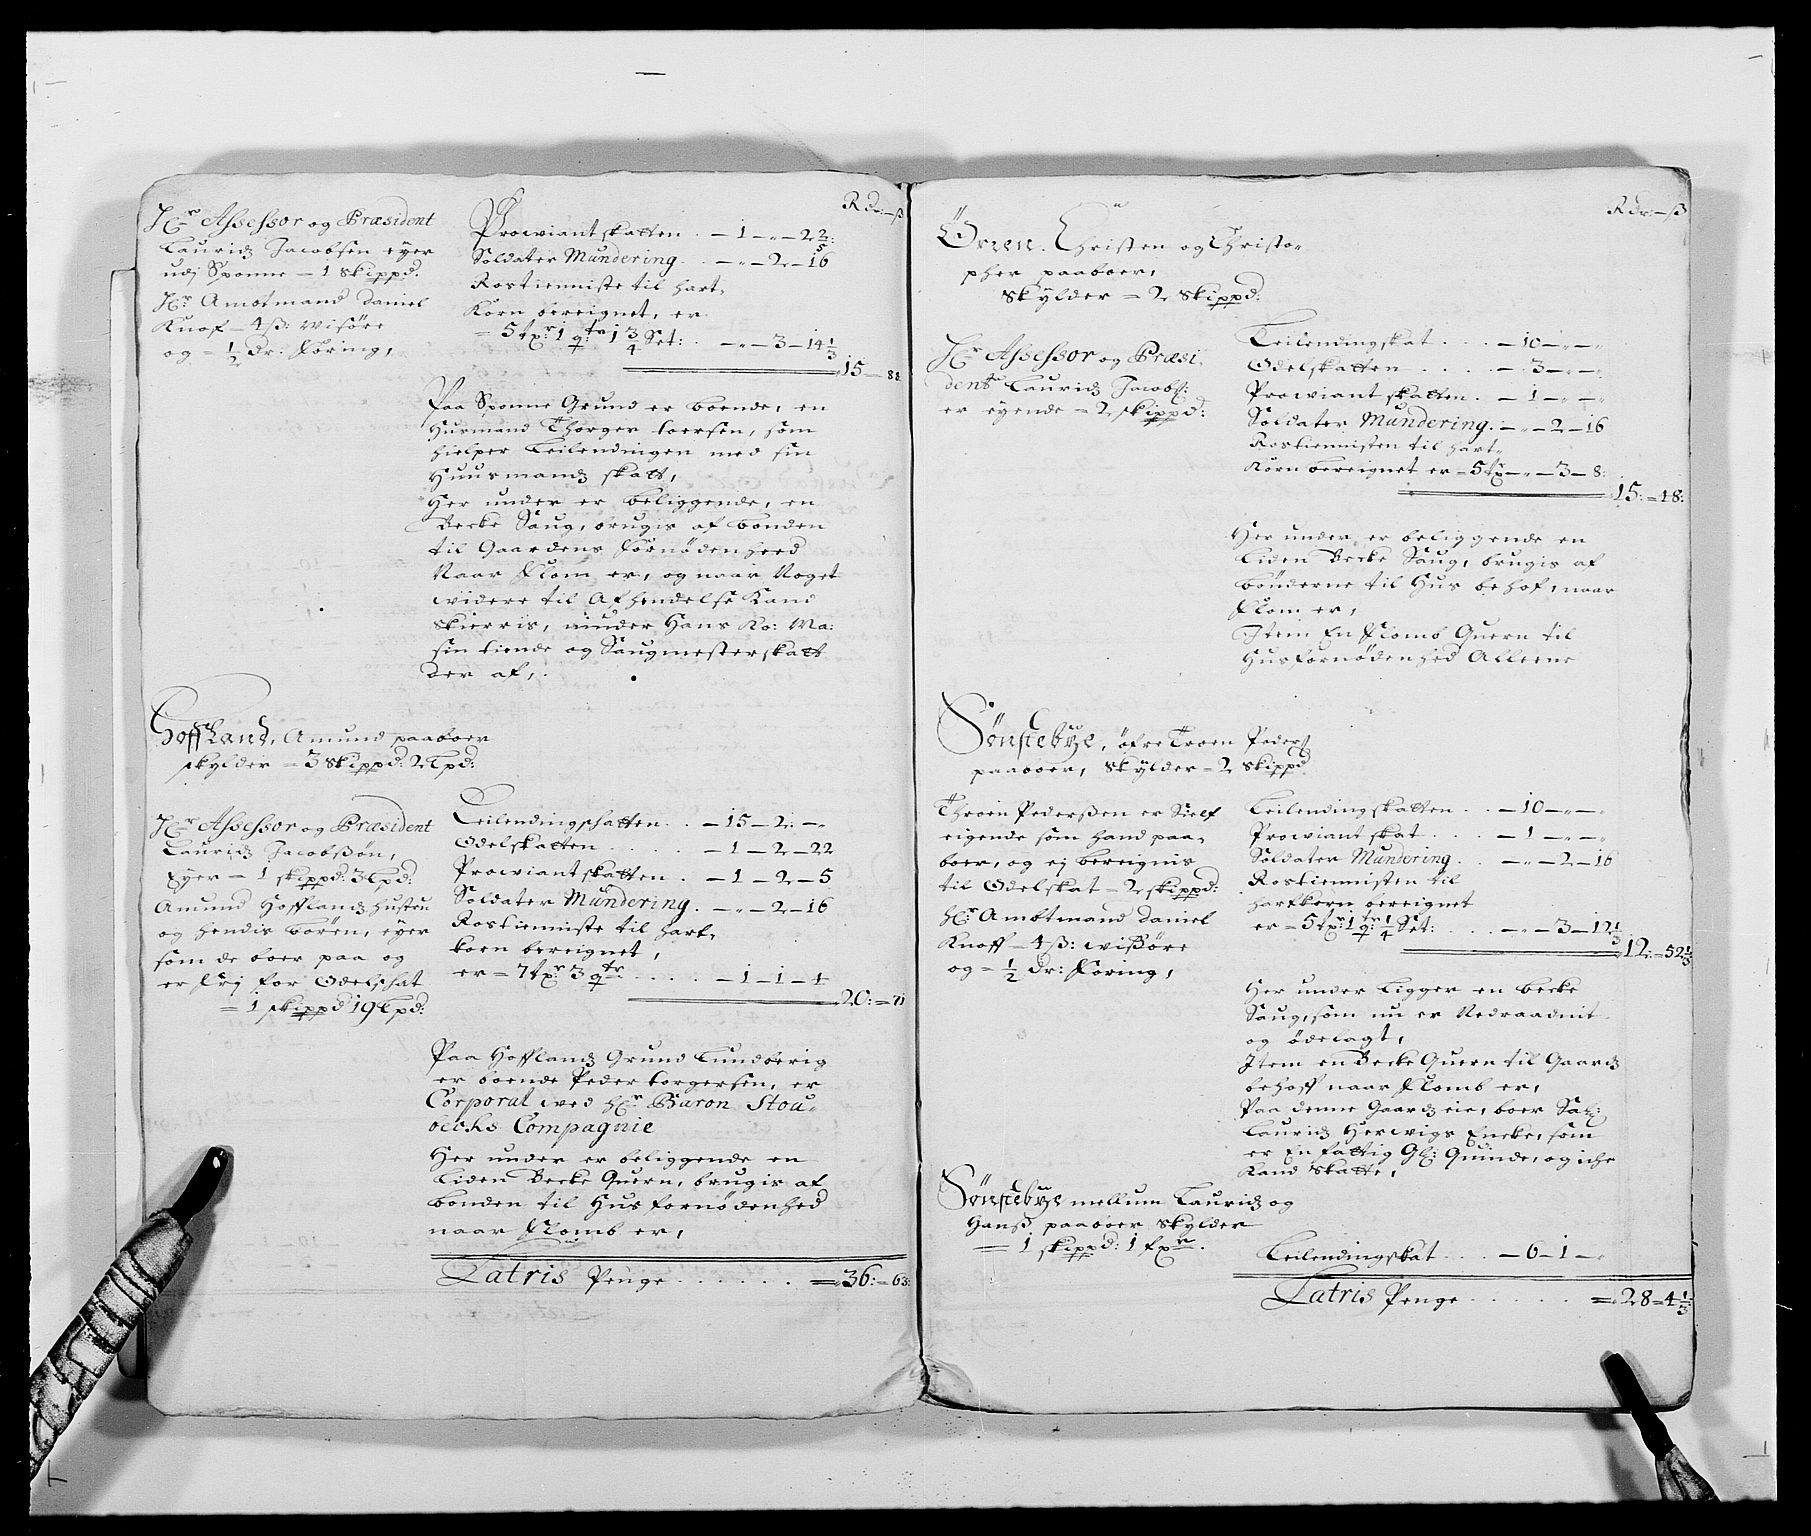 Rdr:—ß
Hr Assessor og Præsident
Lauridz Jacobsen eyer
udj Sponne — 1 skippd:
Hr Ambtmand Daniel
Knof — 4 ß: wisöre
og = 1/2 Dr: Föring,
Prowiantskatten . — 1 — „ — 2 2/5:
Soldater Mundering . — „ — 2 — 16
Rostienniste til hart,
Korn bereignet, er
= 5 tr 1 qr 1 3/4 Set: . — „ — 3 — 14 1/3
15 — 88
Paa Sponne Grund er boende, en
Husmand Thorger loersen, som
hielper Leilendingen med sin
Huusmandz skatt,
Her under er beliggende, en
Becke Saug, brugis af bonden
til Gaardens Fornödenheed
Naar Flom er, og naar Noget
widere til Afhendelse Kand
skierris, niuder Hans Ko: Ma:
sin tiende og Saugmesterskatt
der af,
Hoffland, Amund paaboer
skylder = 3 skippd: 2 Lpd:
Hr Assessor og Præsident
Lauridz Jacobßön,
Eyer = 1 skippd: 3 Lpd:
Amund Hofflandz hustru
og hendis börn, eyer
som de boer paa og
er frj for Odelschat
= 1 skippd 19 Lpd:
Leilendingschatten . . — 15 — 2 — „
Odelskatten . . . . . — 1 — 2 — 22
Prowiantskatten . — 1 — 2 — 5
Soldater Mundering . — „ — 2 — 16
Rostienniste til hart,
korn bereignet,
er = 7 tr 3 qr . . . . — 1 — 1 — 4
20: = 71
Paa Hofflandz Grund Lundberig
er boende Peder borgersen, er
Corporal wed hr Baron Stou-
becks Compagnie
Her under er beliggende en
Liden Becke Quern, brugis af
bonden til Hus fornödenhed
naar Flomb er,
Latris Penge . . . . . . = 36: = 63:
Rdr:—ß
Örzen. Christen og Christo-
pher paaboer,
skylder = 2 skippd:
Hr Assessor og Præsi
dent Lauridz Jacobs:
er eyende = 2 skippd:
Leilendingskat . . . . — 10 — „ — „
Odelskatten . . . . — 3 — „ — „
Prowiantskatten . — 1 — „ — „
Soldater Mundering . — „ — 2 — 16
Rostiennisten til hart„
Korn bereignet er = 5 tr — „ — 3 — 8:
15: = 48:
Her under er beliggende en
Liden Becke Saug, brugis af
bönderne til Hus behof, naar
Flom er,
Item En Flomb Quern til
Husfornödenhed Alleene
Sönstebÿe, öfre Troen Peders
paaboer, skÿlder = 2 skippd
Throen Pederßen er Sielf
eigende som hand paa-
boer, og ej bereignis
til Odelskat = 2 skippd:
Hr Ambtmand Daniel
Knoff — 4 ß: wißöre
og = 1/2 Dr: Foring,
Leilendingskatten . . . — 10 — „ — „
Prowiantskat . . . . — 1 — „ — „
Soldater Mundering . . — „ — 2 — 16
Rostiennisten til
hartkorn bereignet
er = 5 tr 1 qr 1/4 Set: . . . — „ — 3 — 12 1/3
12: = 52 1/3
Her under Ligger en becke
Saug, som nu er Nedraadnit
og ödelagt,
Item en Becke Quern til Gaardz
behoff naar Flomb er,
Paa denne Gaardz eie, boer Sal:
Lauridz Herwigs Encke, som
er En fattig Gl: Quinde, og iche
Kand skatte,
Sönstebÿe mellum Lauridz og
Hanß paaboer skylder
= 1 skippd: 1 fxr.
Leilendingskat . . . — 6 — 1 — „
Latris Penge . . . . . . = 28 = 4 1/3